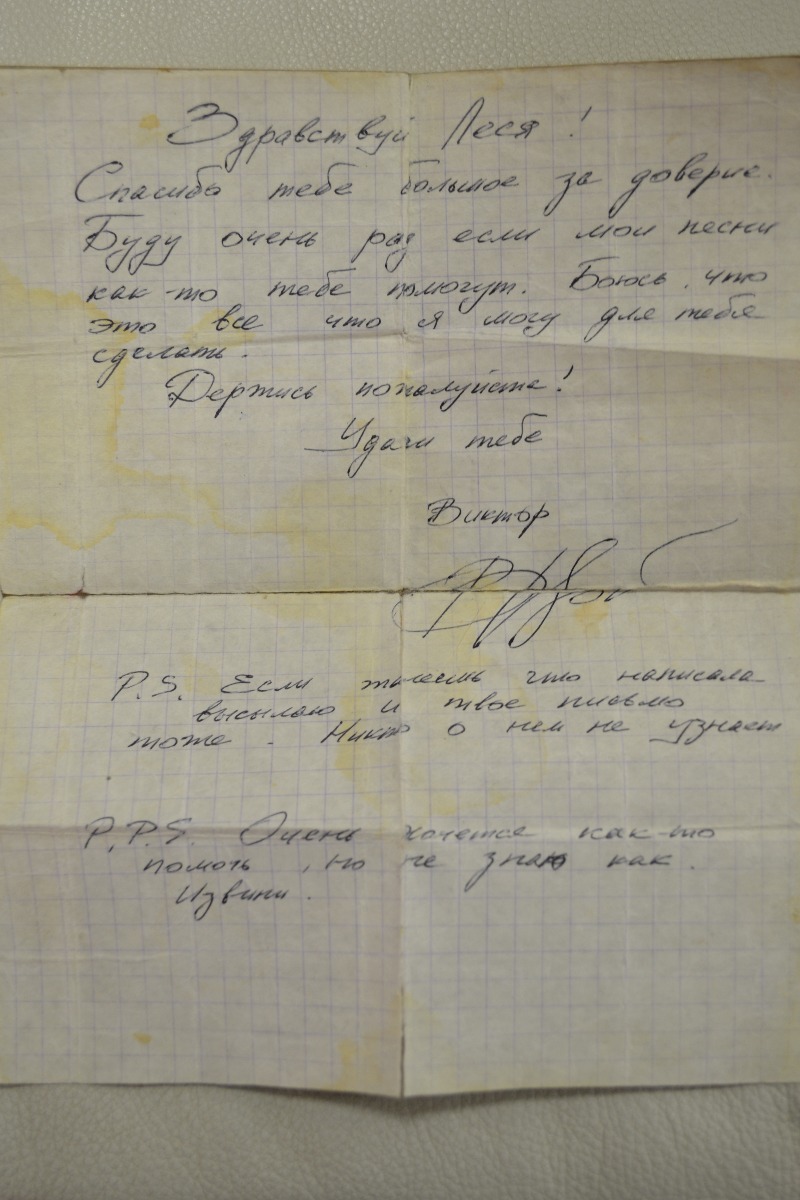 Здравствуй Леся!
Спасибо тебе большое за доверие.
Буду очень рад если мои песни
как-то тебе помогут. Боюсь, что
это все что я могу для тебя
сделать.
Держись пожалуйста!
Удачи тебе
Виктор
P.S. Если жалеешь что написала
высылаю и твое письмо
тоже. Никто о нем не узнает
P.P.S. Очень хочется как-то
помочь, но не знаю как.
Извини.